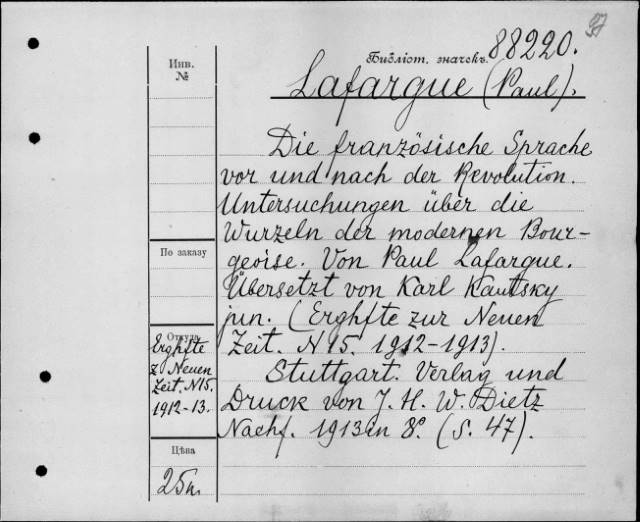 97
Библіот. значекъ. 88220.
Инв.
№
Lafargue (Paul).
Die französische Sprache
vor und nach der Revolution.
Untersuchungen über die
Wurzeln der modernen Bour-
geoise. Von Paul Lafargue.
Übersetzt von Karl Kautsky
jun. (Erghfte zur Neuen
Zeit. N 15. 1912-1913).
Stuttgart. Verlag und
Druck von J. H. W. Dietz
Nachf. 1913 in 8º. (S. 47).
По заказу
Откуда
Erghfte
z Neuen
Zeit. N15.
1912-13.
Цѣна
25